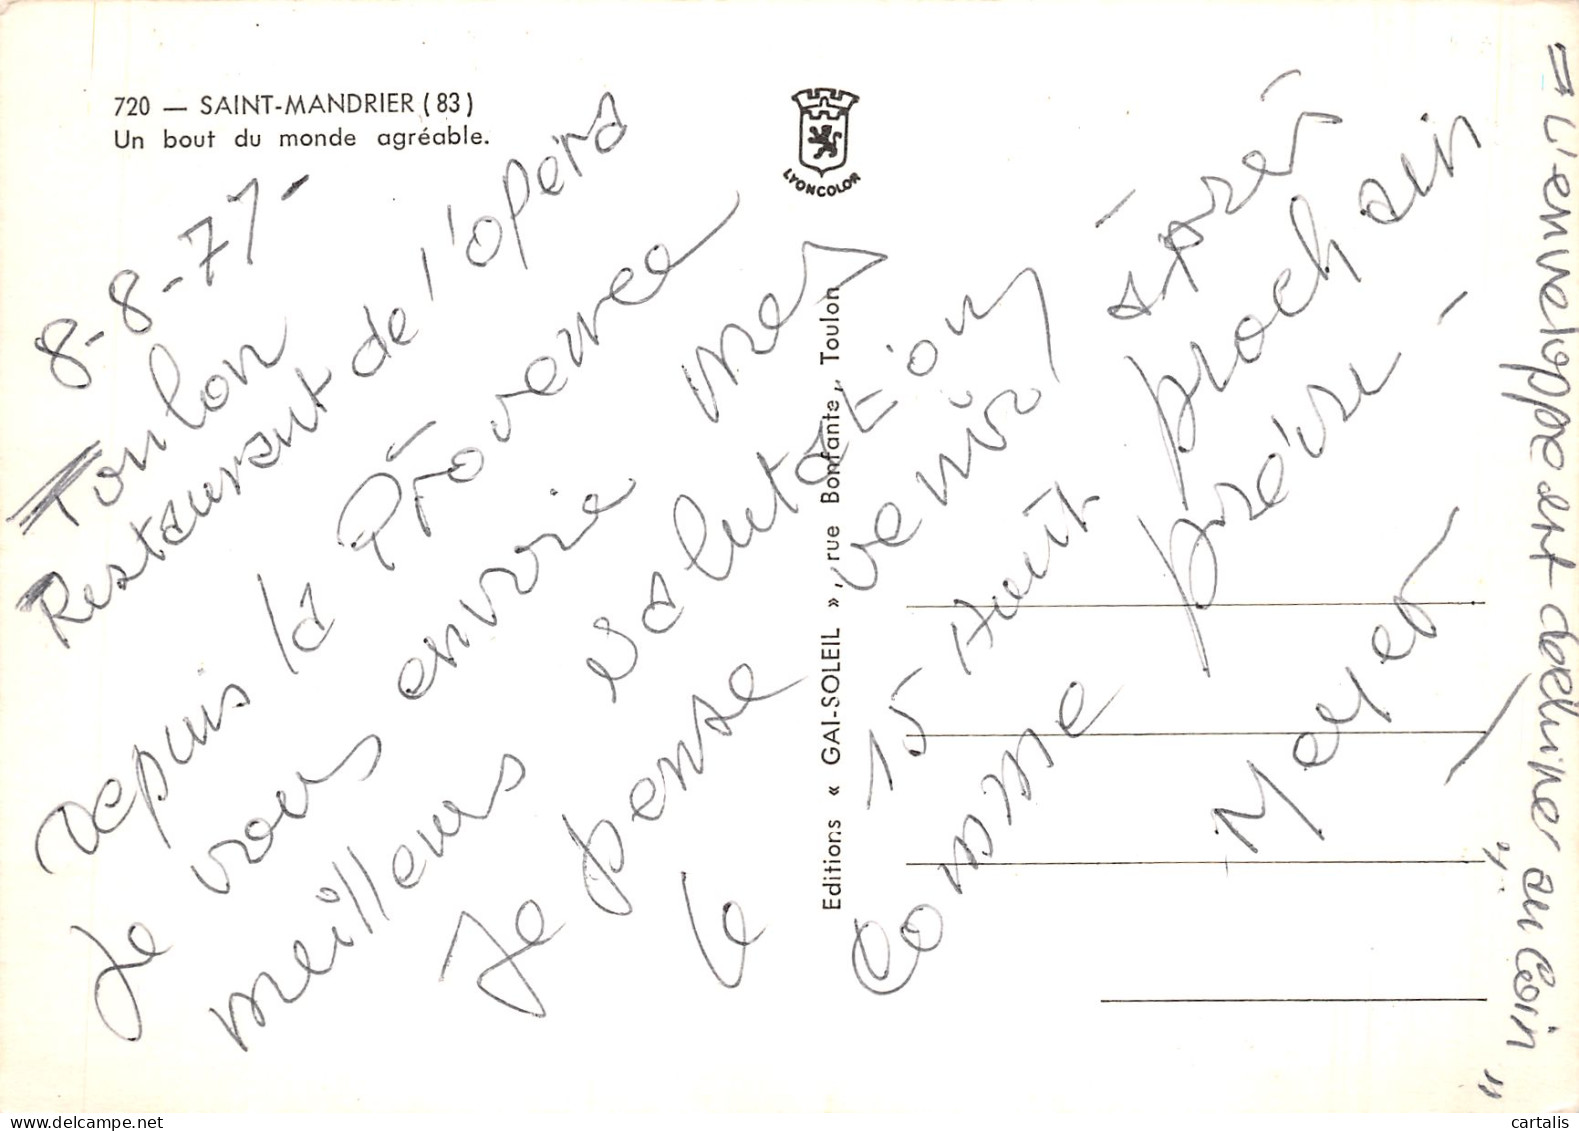 720 — SAINT-MANDRIER (83)
Un bout du monde agréable.
LYONCOLOR
8-8-77-
Toulon
Restaurant de l'opéra
depuis la Provence
Je vous envoie mes
meilleurs salutation
Je pense venir après
le 15 Août prochain
comme prévu -
Meyer
Editions « GAI-SOLEIL », rue Bonfante, Toulon
= L'enveloppe est de
au coin "
cartalis